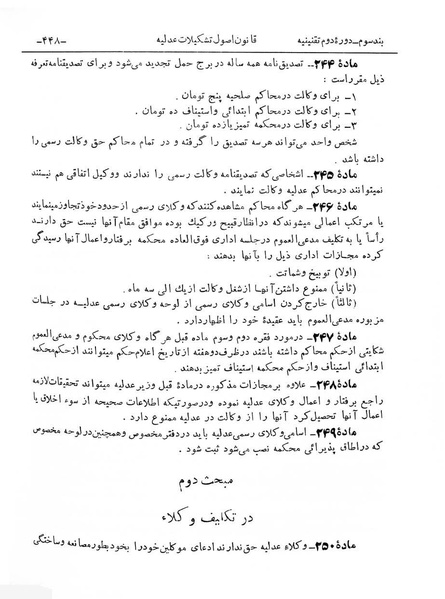 بندسوم_دورۀ دوم تقنینیه قانون اصول تشکیلات عدلیه -۴۴۸-
مادۀ ۲۴۴_ تصدیق نامه همه ساله در برج حمل تجدید می‌شود و برای تصدیقنامه تعرفه
ذیل مقرر است :
۱_ برای وکالت در محاکم صلحیه پنج تومان .
۲_ برای وکالت در محاکم ابتدائی و استیناف ده تومان .
۳_ برای وکالت در محکمه تمیز پانزده تومان .
شخص واحد می‌تواند هر سه تصدیق را گرفته و در تمام محاکم حق وکالت رسمی را
داشته باشد .
مادۀ ۲۴۵_ اشخاصی که تصدیقنامه وکالت رسمی را ندارند و وکیل اتفاقی هم نیستند
نمیتوانند در محاکم عدلیه وکالت نمایند .
مادۀ ۲۴۶_ هر گاه محاکم مشاهده کنند که وکلای رسمی از حدود خود تجاوز مینمایند
یا مرتکب اعمالی میشوند که در انظار قبیح و رکیك بوده موافق مقام آنها نیست حق دارند
رأساً یا به تکلیف مدعی‌العموم در جلسه اداری فوق‌العاده محکمه برفتار و اعمال آنها رسیدگی
کرده مجازات اداری ذیل را بآنها بدهند :
(اولا) توبیخ و شماتت .
(ثانیاً) ممنوع داشتن آنها از شغل وکالت از یك الی سه ماه .
(ثالثاً) خارج کردن اسامی وکلای رسمی از لوحه وکلای رسمی عدلیه در جلسات
مزبوره مدعی‌العموم باید عقیدۀ خود را اظهار دارد .
مادۀ ۲۴۷_ در مورد فقره دوم و سوم ماده قبل هر گاه وکلای محکوم و مدعی‌العموم
شکایتی از حکم محاکم داشته باشند در ظرف دو هفته از تاریخ اعلام حکم میتوانند از حکم محکمه
ابتدائی استیناف و از حکم محکمه استیناف تمیز بدهند .
مادۀ ۲۴۸_ علاوه بر مجازات مذکوره در مادۀ قبل وزیر عدلیه میتواند تحقیقات لازمه
راجع برفتار و اعمال وکلای عدلیه نموده و در صورتیکه اطلاعات صحیحه از سوء اخلاق یا
اعمال آنها تحصیل کرد آنها را از وکالت در عدلیه ممنوع دارد .
مادۀ ۲۴۹_ اسامی وکلای رسمی عدلیه باید در دفتر مخصوص و همچنین در لوحه مخصوص
که در اطاق پذیرائی محکمه نصب می‌شود ثبت شود .
مبحث دوم
در تکالیف وکلاء
مادۀ ۲۵۰_ وکلاء عدلیه حق ندارند ادعای موکلین خود را بخود بطور مصانعه و ساختگی